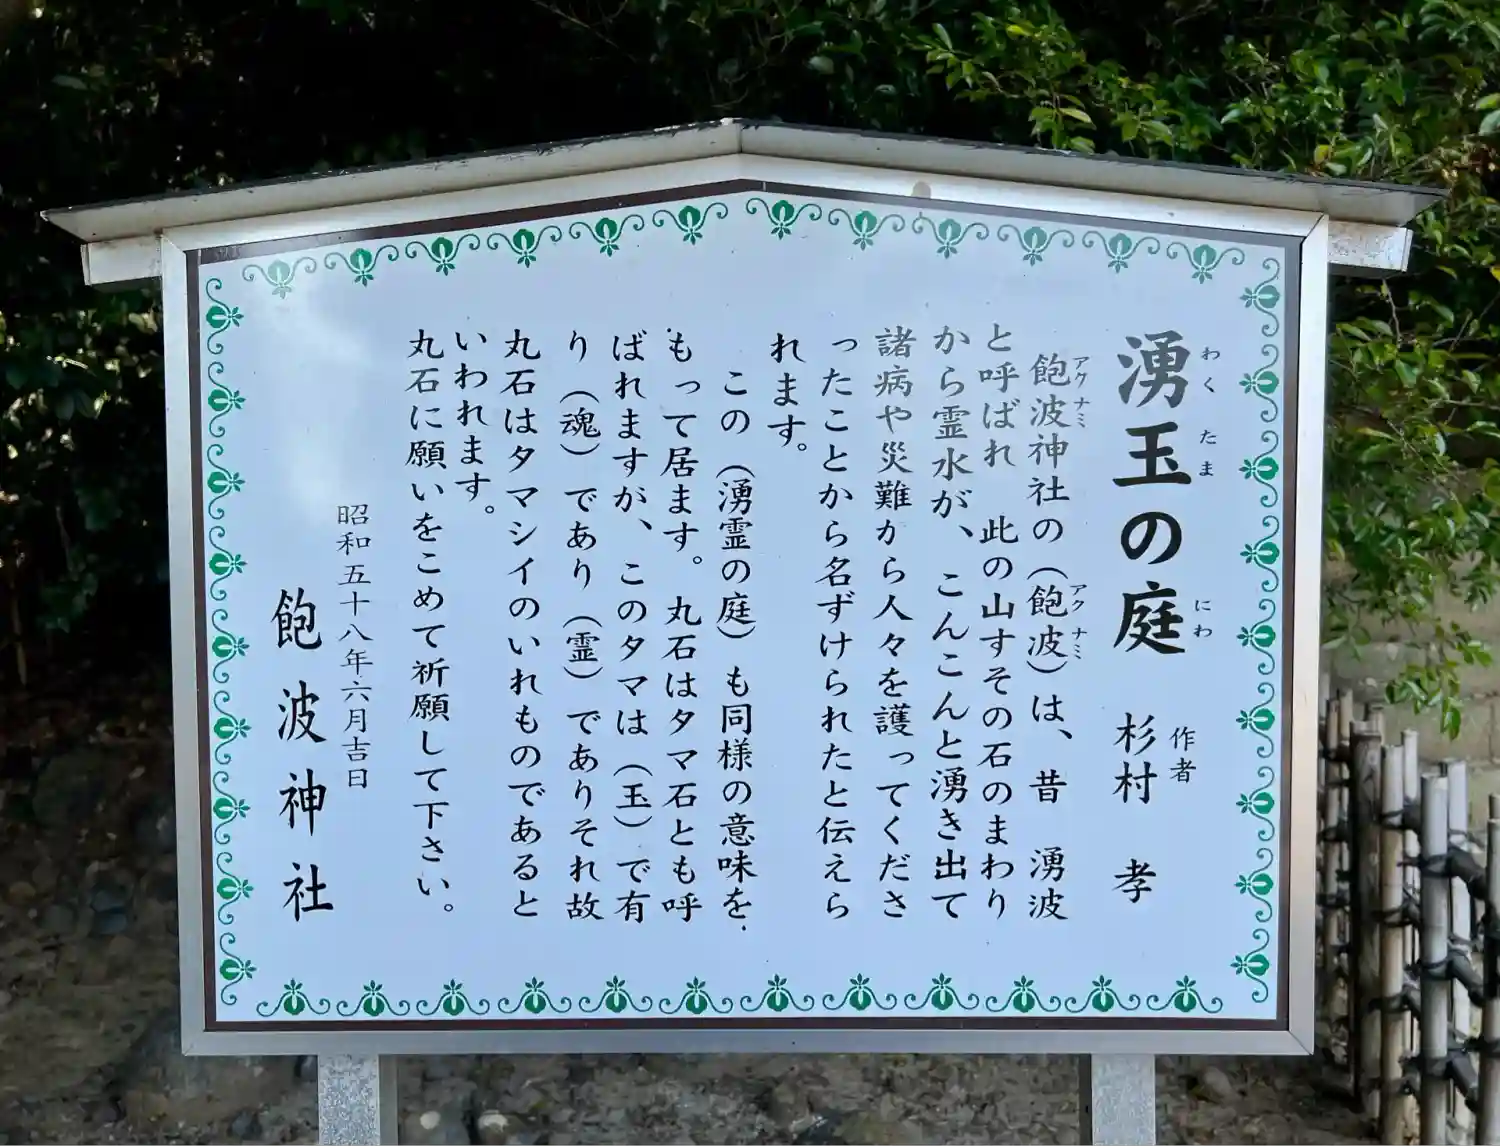 湧玉の庭 杉村 孝
わく たま にわ 作者
飽波神社の(飽波)は、昔 湧波
アク ナミ アク ナミ
と呼ばれ 此の山すその石のまわり
から霊水が、こんこんと湧き出て
諸病や災難から人々を護ってくださ
ったことから名ずけられたと伝えら
れます。
この(湧霊の庭)も同様の意味を
もって居ます。丸石はタマ石とも呼
ばれますが、このタマは(玉)で有
り(魂)であり(霊)でありそれ故
丸石はタマシイのいれものであると
いわれます。
丸石に願いをこめて祈願して下さい。
昭和五十八年六月吉日
飽波神社